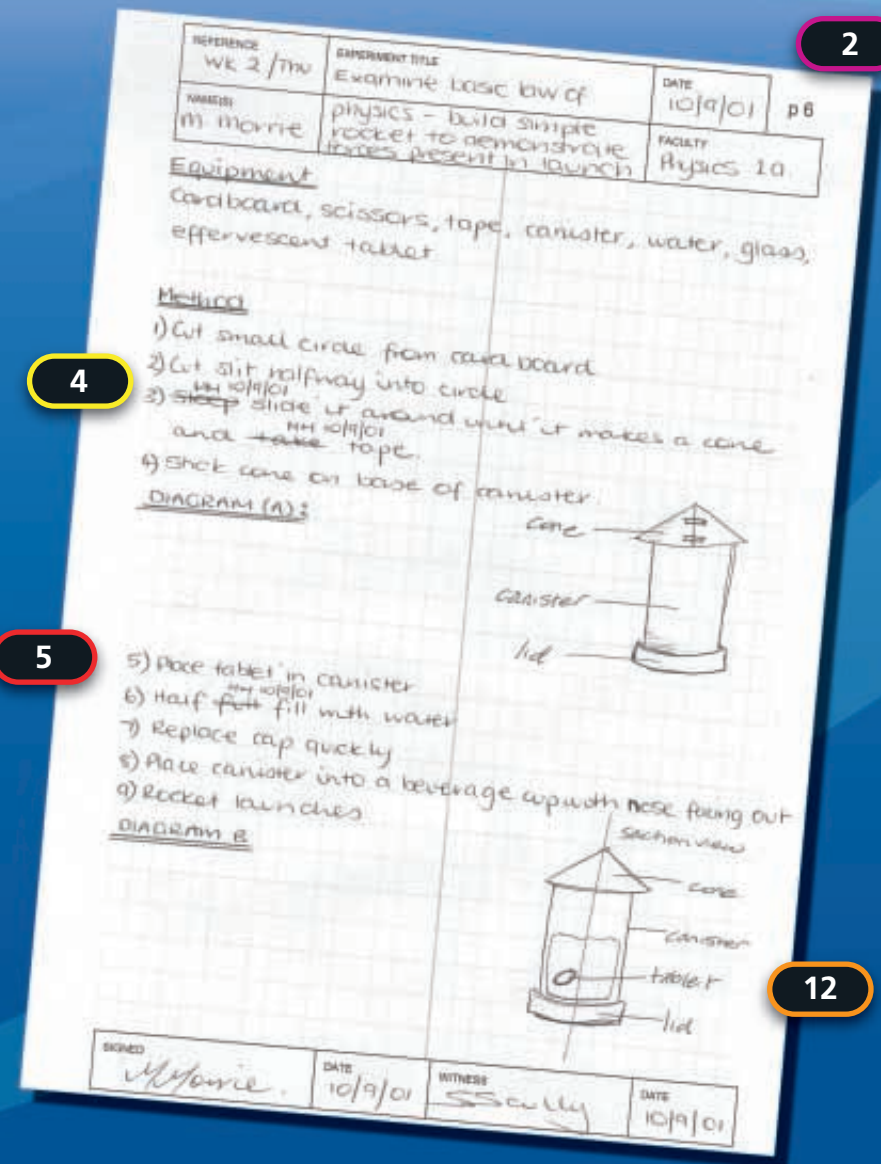 2
REFERENCE
WK 2 / Thu
EXPERIMENT TITLE
Examine basic law of
physics - build simple
rocket to demonstrate
forces present in launch
DATE
10/9/01
p 6
NAME(S)
M Morrie
FACULTY
Physics 1a
Equipment
Cardboard, scissors, tape, canister, water, glass,
effervescent tablet
Method
1) Cut small circle from card board
4
2) Cut slit halfway into circle
MM 10/9/01
3) slide it around until it makes a cone
MM 10/9/01
and take tape.
4) Stick cone on base of canister.
DIAGRAM (A):
cone
canister
lid
5
5) Place tablet in canister
MM 10/9/01
6) Half full fill with water
7) Replace cap quickly
8) Place canister into a beverage cup with nose facing out
9) Rocket launches
DIAGRAM B
section view
cone
canister
tablet
lid
12
SIGNED
MMorrie.
DATE
10/9/01
WITNESS
SScully
DATE
10/9/01